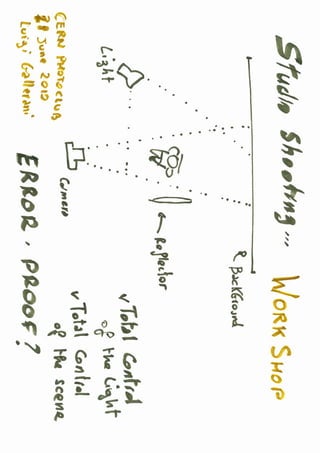 Studio Shooting... WORKSHOP
BACKGROUND
Light
Reflector
Camera
v Total Control
of the Light
v Total Control
of the scene
CERN PHOTOCLUB
June 2010
Luigi Gallerani
ERROR. PROOF?